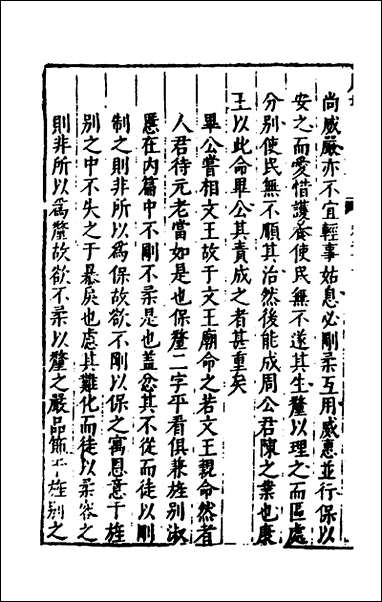 尚威嚴亦不宜輕事姑息必剛柔互用威惠並行保以
安之而愛惜護養使民無不遂其生釐以理之而區處
分别使民無不順其治然後能成周公君陳之業也康
王以此命畢公其責成之者甚重矣
畢公嘗相文王故于文王廟命之若文王親命然者
人君待元老當如是也保釐二字平看俱兼旌别淑
慝在内篇中不剛不柔是也盖忿其不從而徒以剛
制之則非所以爲保故欲不剛以保之寓恩意于旌
别之中不失之于暴戾也慮其難化而徒以柔容之
則非所以爲釐故欲不柔以釐之嚴品節于旌别之